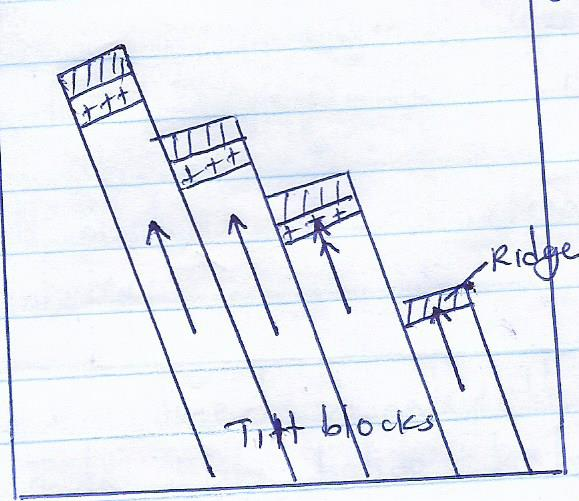 Ridge
Tilt blocks